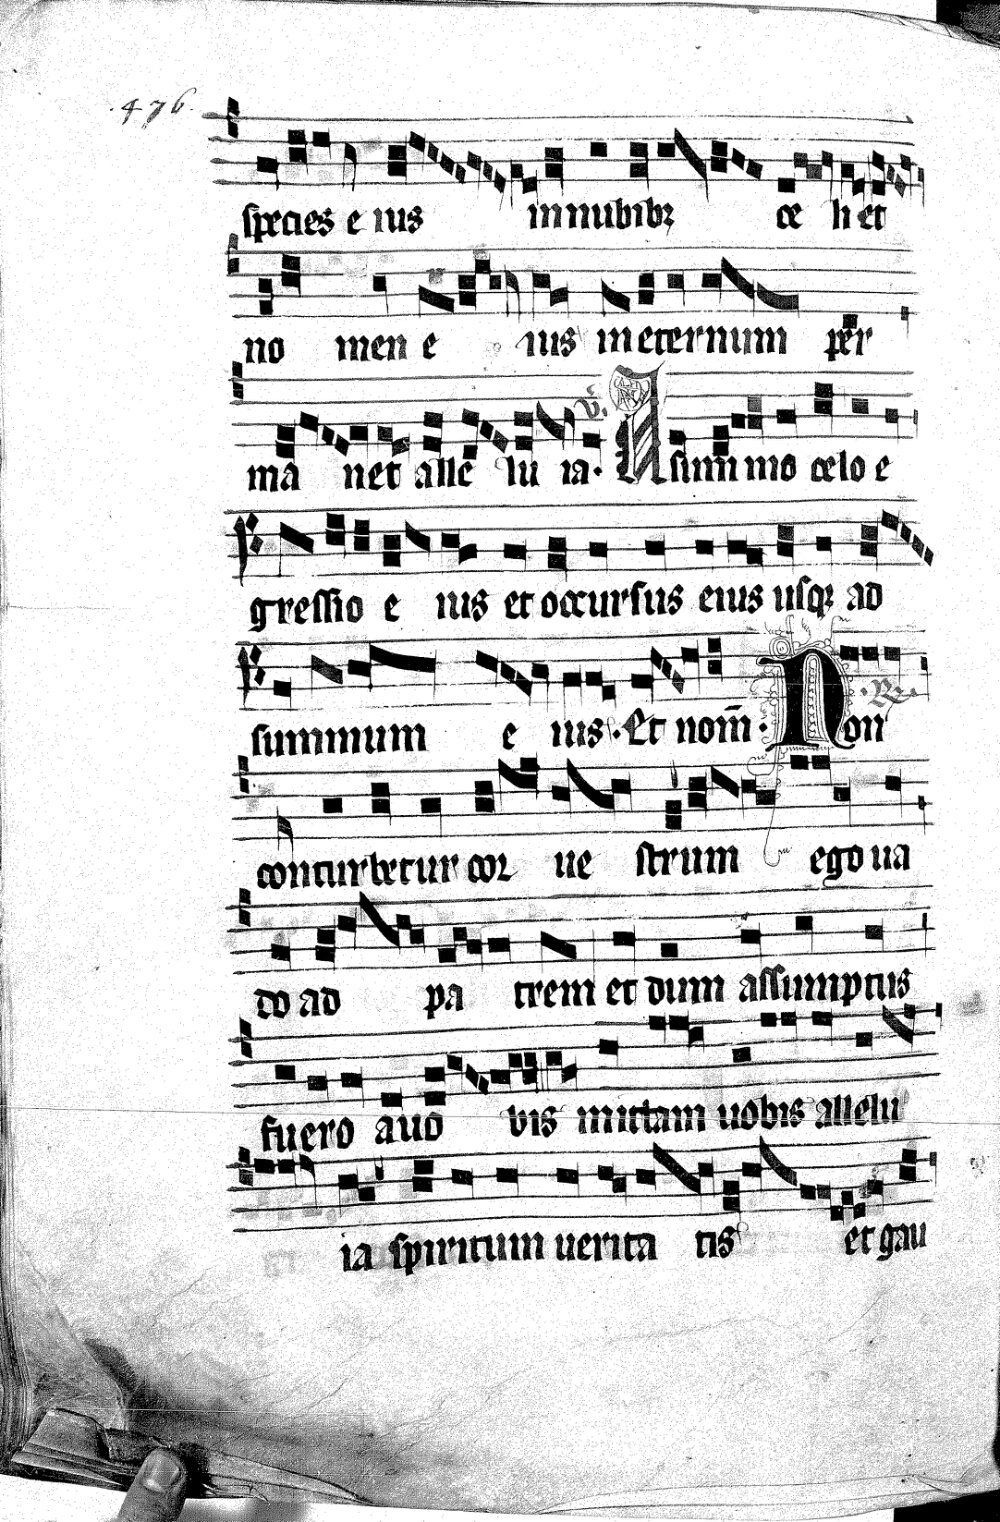 .476.
species e ius in nubibꝫ ce li et
no men e ius in eternum per
ma net alle lu ia. ℣. A summo celo e
gressio e ius et occursus eius usqꝫ ad
summum e ius. Et nom̄. ℟. Non
conturbetur cor ue strum ego ua
do ad pa trem et dum assumptus
fuero a uo bis mittam uobis allelu
ia spiritum uerita tis et gau